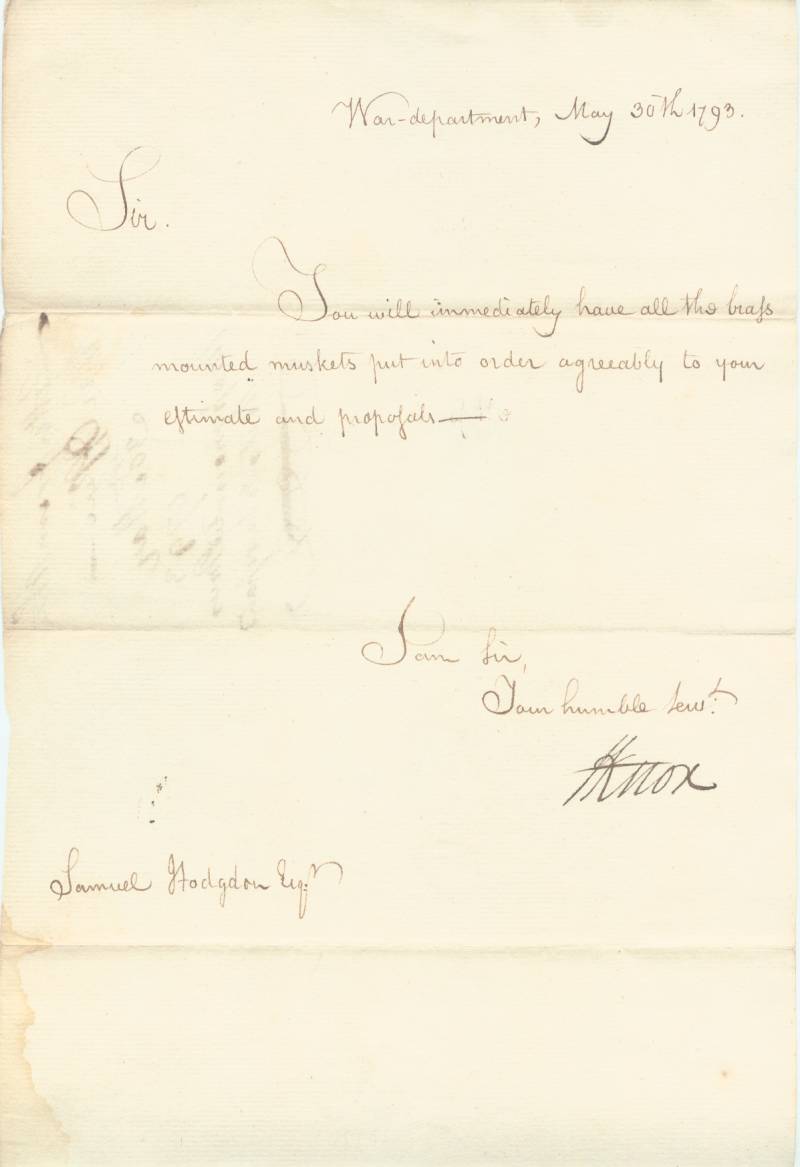 War-department, May 30th 1793.
Sir.
You will immediately have all the braſs
mounted muskets put into order agreeably to your
eſtimate and propoſals—
I am Sir,
Your humble Servt.
HKnox
Samuel Hodgdon Esqr